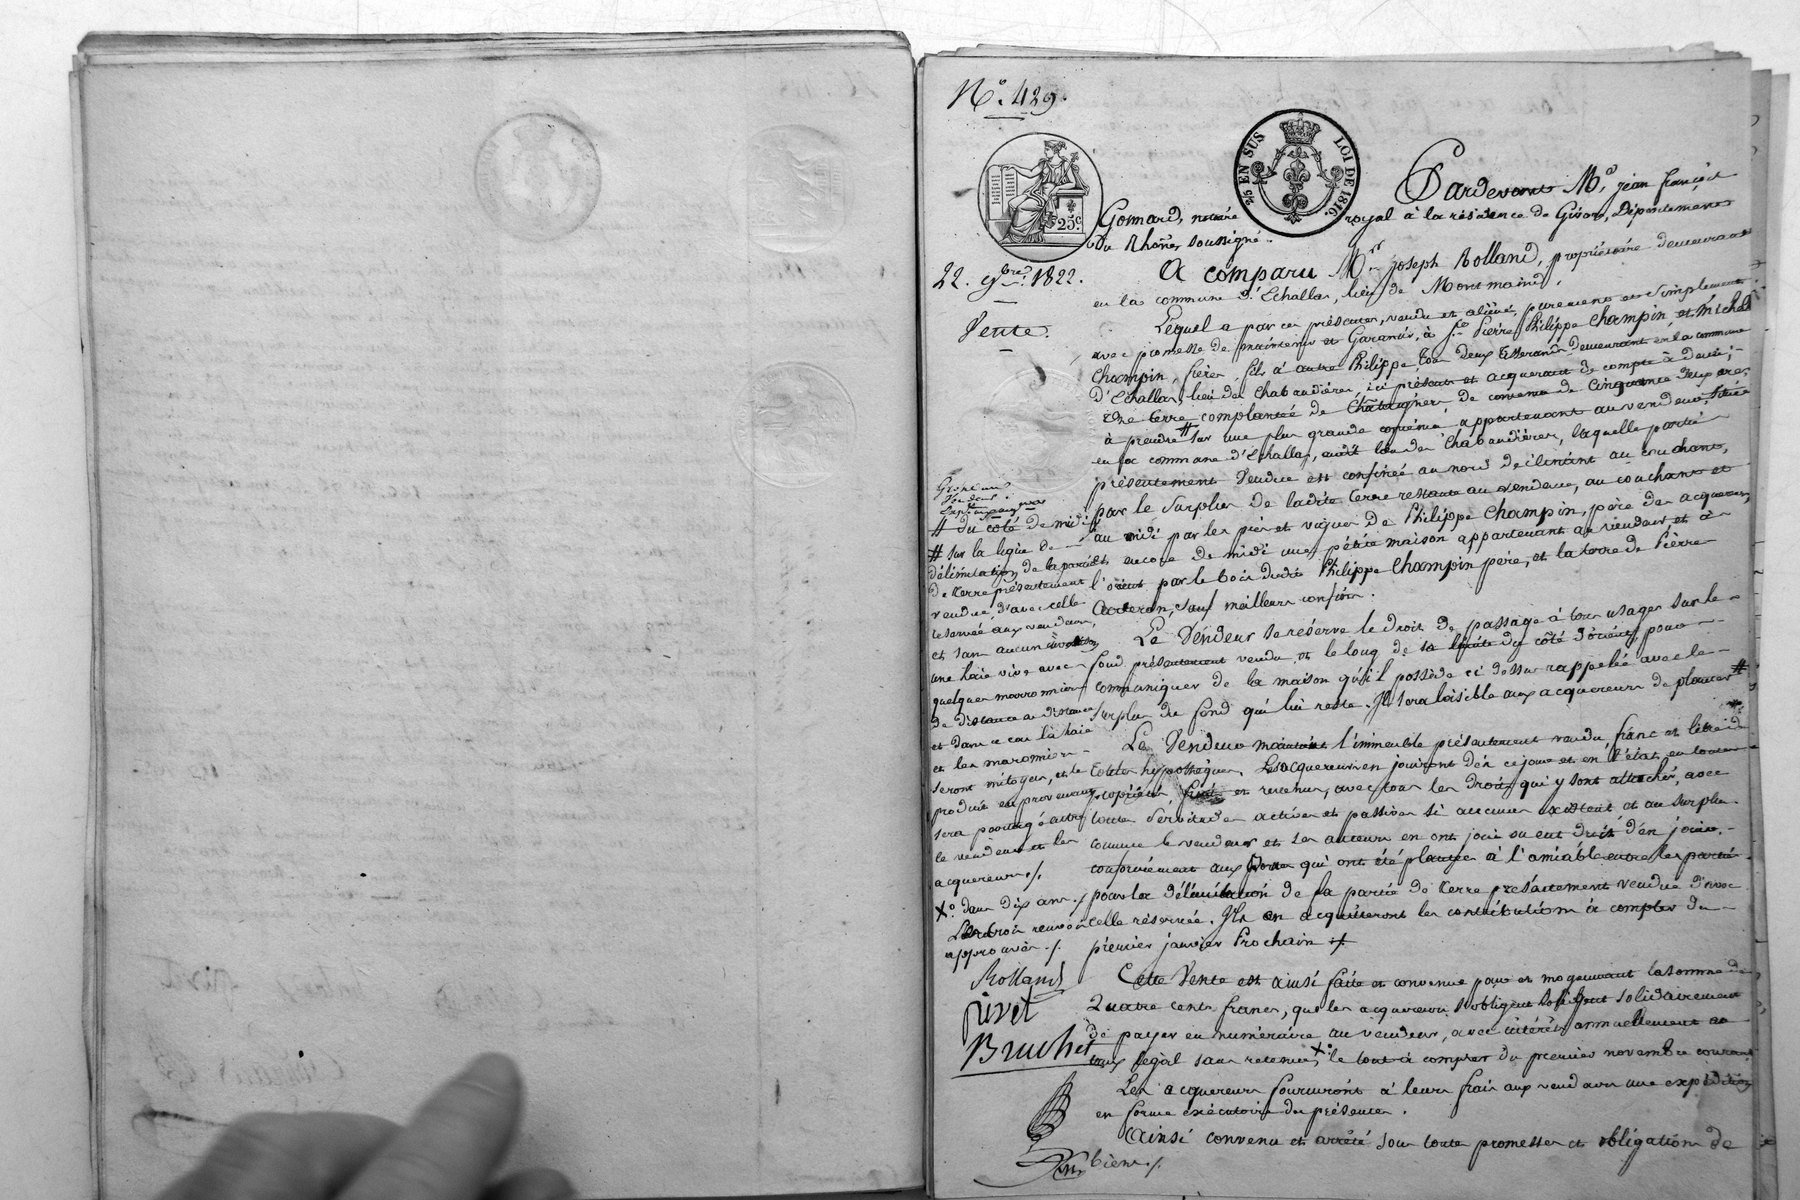 N.º 429.
25 c.
2/5 EN SUS LOI DE 1816.
Pardevant M.e jean françois
Gomard, notaire royal à la résidence de Givors, Département
Du Rhône, soussigné.
22. 9bre. 1822.
Vente.
A comparu M.r joseph Rolland, propriétaire demeurant
en la commune d'Echallas, lieu de Montmaind,
Lequel a par ces présentes, vendu et aliéné, purement et simplement
avec promesse de maintenir et Garantir, à S.rs Pierre Philippe Champin, et Michel
Champin, frères fils d'autre Philippe, tous deux tisserands demeurant en la commune
d'Echallas, lieu des Chabaudières, ici présents et acquerant de compte à demi;
Une terre complantée de Chataigners, de contenue de Cinquante
à prendre # sur une plus grande contenue appartenant au vendeur, située
en la commune d'Echallas, audit lieu des Chabaudières, laquelle partie
présentement Vendue est confinée au nord déclinant au couchant,
par le Surplus de ladite terre restante au vendeur, au couchant et
au midi par les pies et vignes de Philippe Champin, père des acquereurs,
et encore de midi une petite maison appartenant au vendeur et à
l'orient par le bois dudit Philippe Champin père, et la terre de Pierre
sauf meilleurs confins.
Le Vendeur se réserve le droit de passage à tous usages sur le
fond présentement vendu et le long de sa du côté d'orient, pour
communiquer de la maison qu'il possède ci dessus rappelée avec le
surplus du fond qui lui reste. Il sera loisible aux acquereurs de planter #
Le Vendeur maintient l'immeuble présentement vendu franc et libre de
toutes hypothèques. Les acquereurs en jouiront dès ce jour et en l'état, en toute
propriété, et revenus, avec tous les droits qui y sont attachés, avec
toutes servitudes actives et passives si aucunes existent, et au surplus
comme le vendeur et ses auteurs en ont joui ou eut droit d'en jouir,
conformément aux bornes qui ont été plantées à l'amiable entre les parties
pour la délimitation de la partie de terre présentement vendue d'avec
celle réservée. Ils en acquitteront les contributions à compter du
premier janvier Prochain #
Cette Vente est ainsi faite et convenue pour et moyennant la somme de
Quatre cents francs, que les acquereurs s'obligent solidairement
de payer en numéraire au vendeur, avec intérêts annuellement au
taux légal sans retenue, X.º le tout à compter du premier novembre courant
Les acquereurs fourniront à leurs frais aux vendeurs une expédition
en forme exécutoire des présentes.
Ainsi convenu et arrêté sous toute promesses et obligations de
biens /.
# du côté de midi
# sur la ligne de
délimitation de la partie
de terre présentement
vendue d'avec celle
reservée aux vendeurs,
et sans aucune
une haie vive avec
quelques marronniers
de distance en distance
et dans ce cas la haie
et les marronniers
seront mitoyens, et le
produit en provenant
sera partagé entre
le vendeur et les
acquereurs /.
X.º dans dix ans /
renvoi
approuvés /.
Rolland
privet
Bruchet